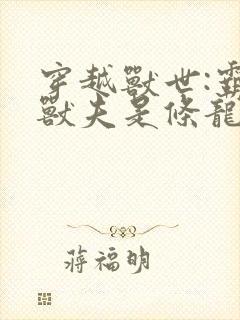 穿越獸世:霸
獸夫是條龍
蔣福明